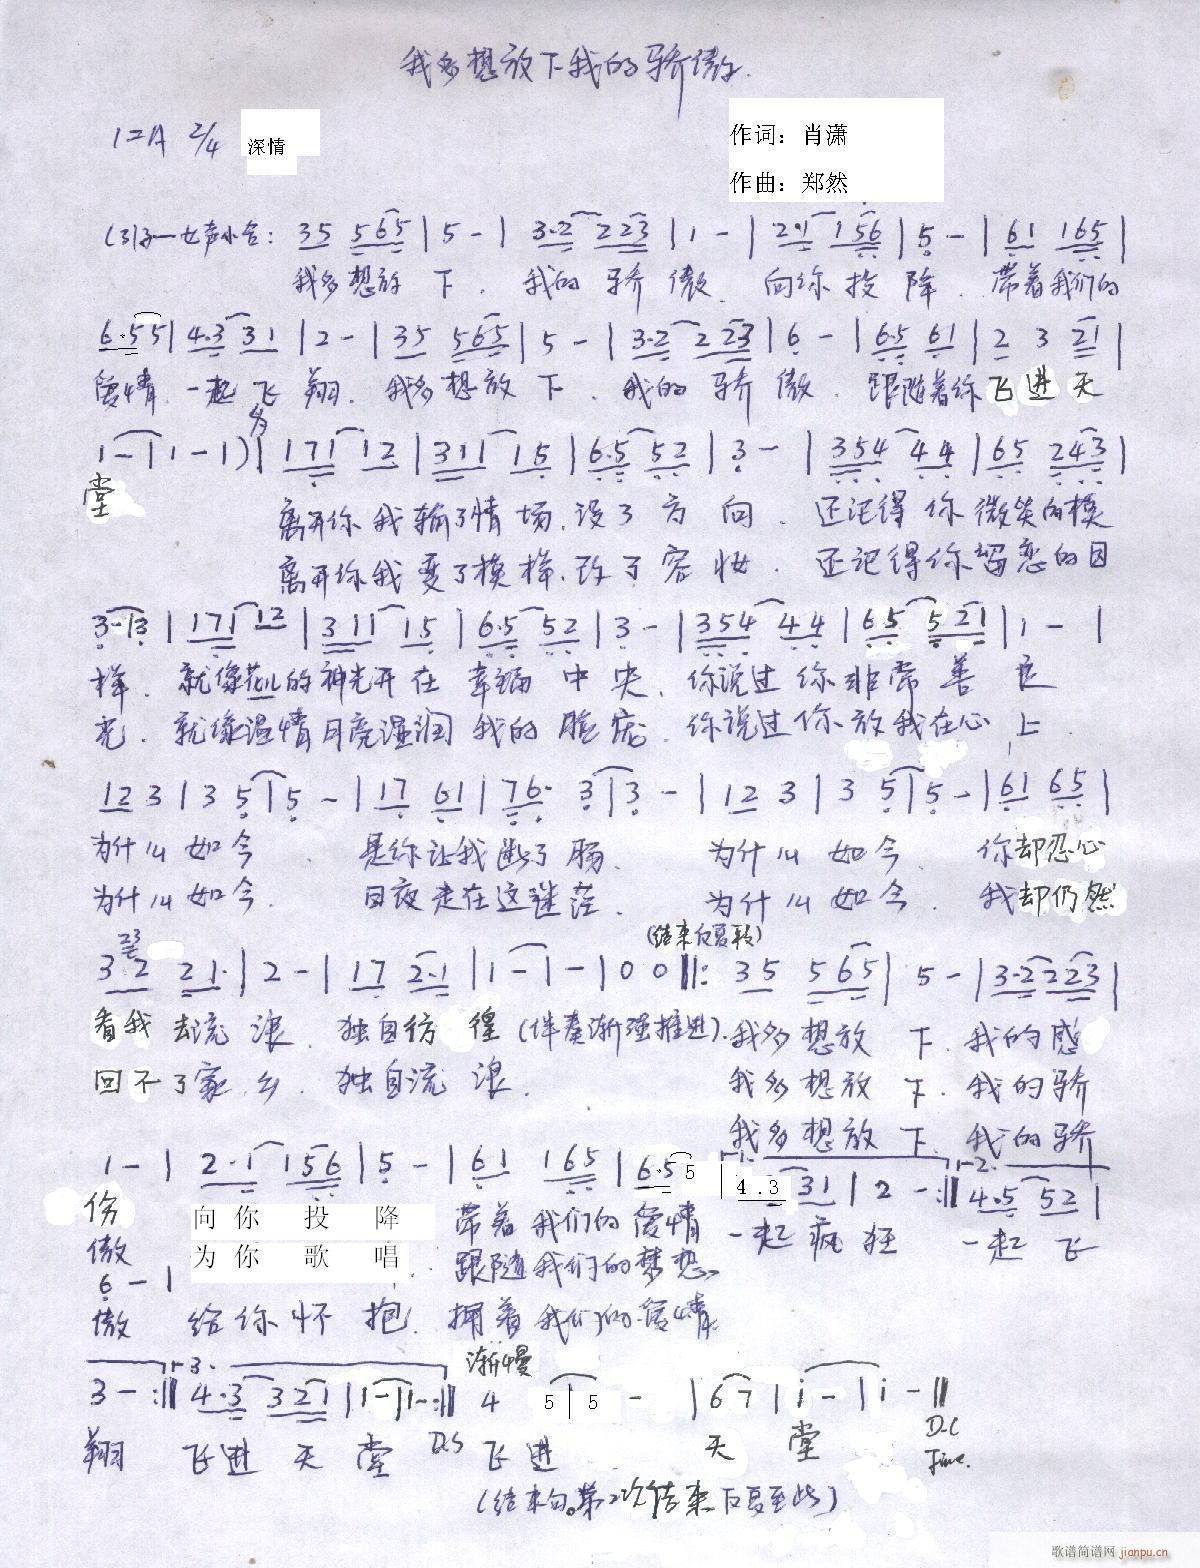 我多想放下我的骄傲
1=A 2/4 深情
作词：肖潇
作曲：郑然
35 565 | 5 - | 3·2 223 | 1 - | 2·1 156 | 5 - | 61 165 |
我多想放 下 . 我的 骄 傲. 向你 投 降 . 带着我们的
6·55 | 4·3 31 | 2 - | 35 565 | 5 - | 3·2 223 | 6 - | 6·5 61 | 2 3 21 |
爱情 . 一起 飞 翔 . 我多想放 下 . 我的 骄 傲 . 跟随着你 飞 进 天
男
1 - | 1 - 1) | 171 12 | 311 15 | 6·5 52 | 3 - | 354 44 | 65 243 |
堂
离开你我输了情场.没了方向 . 还记得你微笑的模
离开你我变了模样.改了容妆 . 还记得你留恋的目
3 - 3 | 171 12 | 311 15 | 6·5 52 | 3 - | 354 44 | 65 521 | 1 - |
样 . 就像花儿的神光开在幸福中央 . 你说过你非常善良
光 . 就像温情月亮湿润我的脸庞 . 你说过你放我在心上
12 3 | 3 5 | 5 - | 17 61 | 76· 3 | 3 - | 12 3 | 3 5 | 5 - | 61 65 |
为什么如今 . 是你让我断了肠 . 为什么如今 . 你却忍心
为什么如今 . 日夜走在这迷茫 . 为什么如今 . 我却仍然
23 (结束反复)
32 21· | 2 - | 17 2·1 | 1 - | - | 0 0 ‖: 35 565 | 5 - | 3·2 223 |
看我去流浪 . 独自彷徨 (伴奏渐强推进). 我多想放下 . 我的感
回不了家乡 . 独自流浪 . 我多想放下 . 我的骄
我多想放下 . 我的骄
1 - | 2·1 156 | 5 - | 61 165 | 6·5 5 | 4.3 31 | 2 - :‖ 2. 4·5 52 |
伤 向 你 投 降 带着我们的爱情 一起疯狂 一起飞
傲 为 你 歌 唱 跟随我们的梦想
6 - |
傲 给你怀抱 . 拥着我们的爱情
渐慢
3 - :‖ 3. 4·3 321 | 1 - | 1 - :‖ 4 5 | 5 - | 67 | i - | i - ‖
翔 飞进天堂 D.S 飞进 天 堂 D.C
Fine.
(结束句。第2次结束反复至此)
歌谱简谱网 jianpu.cn